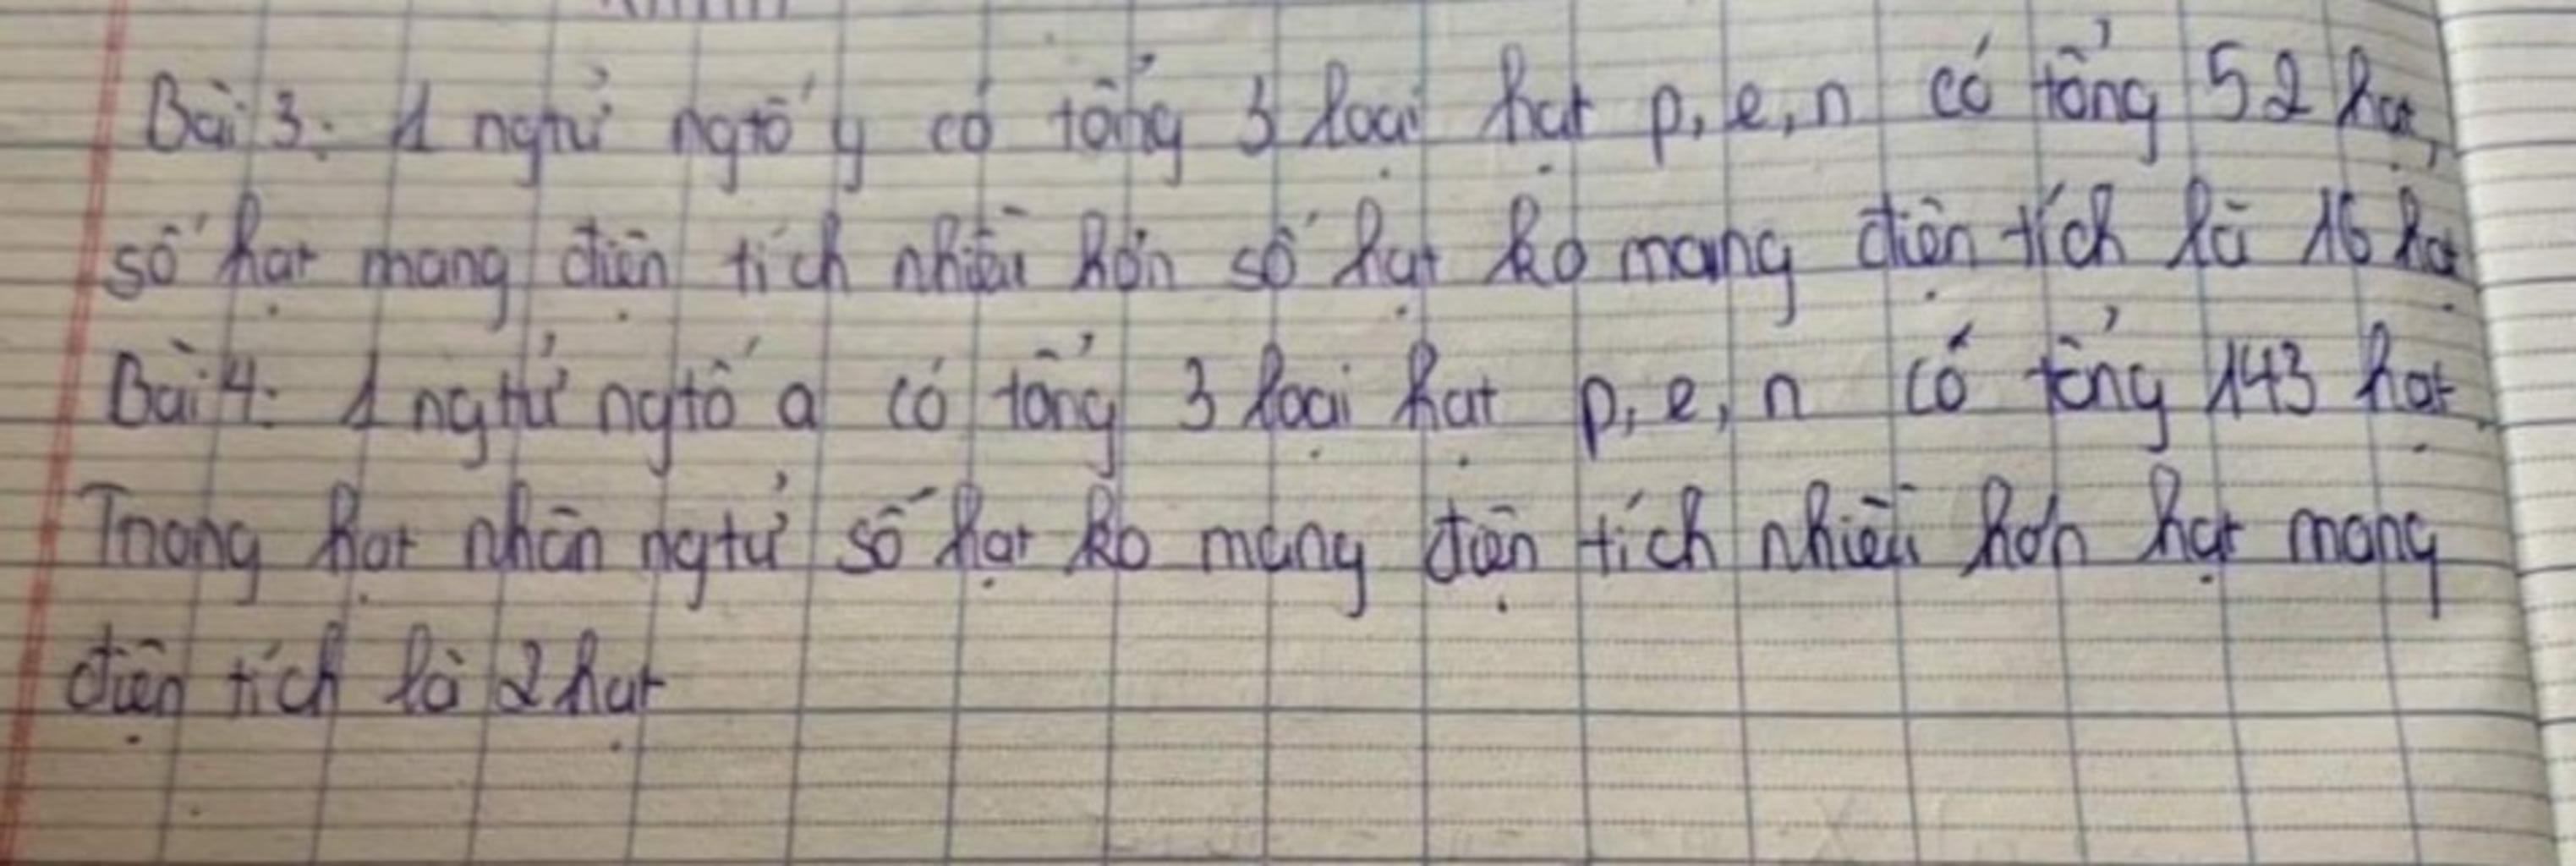 Bài 3: 1 ngtử ngtố y có tổng 3 loại hạt p, e, n có tổng 52 hạt,
số hạt mang điện tích nhiều hơn số hạt ko mang điện tích là 16 hạt
Bài 4: 1 ngtử ngtố a có tổng 3 loại hạt p, e, n có tổng 143 hạt.
Trong hạt nhân ngtử số hạt ko mang điện tích nhiều hơn hạt mang
điện tích là 2 hạt